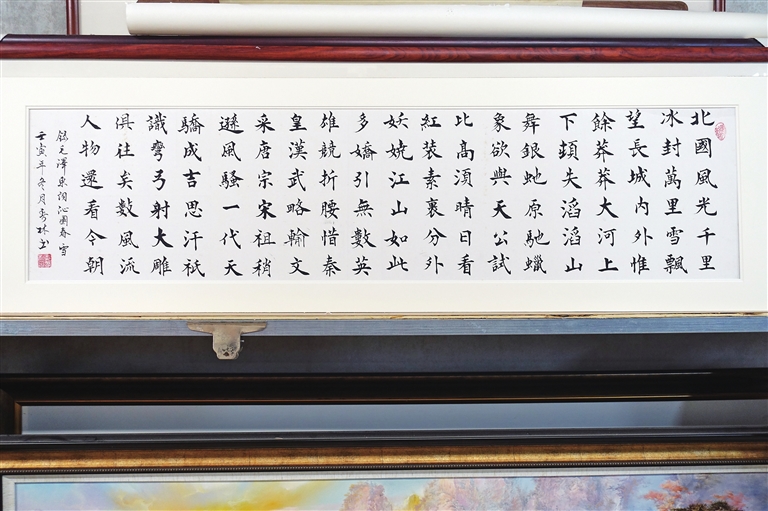 北國風光千里
冰封萬里雪飄
望長城内外惟
餘莽莽大河上
下頓失滔滔山
舞銀虵原馳蠟
象欲與天公試
比高須晴日看
紅裝素裹分外
妖嬈江山如此
多嬌引無數英
雄競折腰惜秦
皇漢武略輸文
采唐宗宋祖稍
遜風騷一代天
驕成吉思汗祇
識彎弓射大雕
俱往矣數風流
人物還看今朝
錄毛澤東詞沁園春雪
壬寅年冬月秀林书